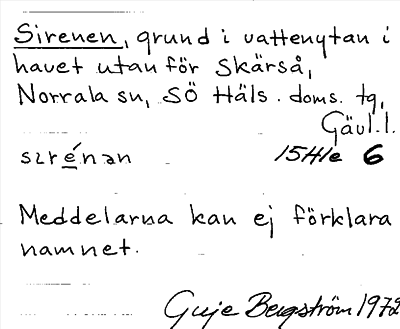 Sirenen, grund i vattenytan i
havet utanför Skärså,
Norrala sn, SÖ Häls. doms. tg,
Gävl. l.
sɩrénən 15H1e 6
Meddelarna kan ej förklara
namnet.
Guje Bergström 1972